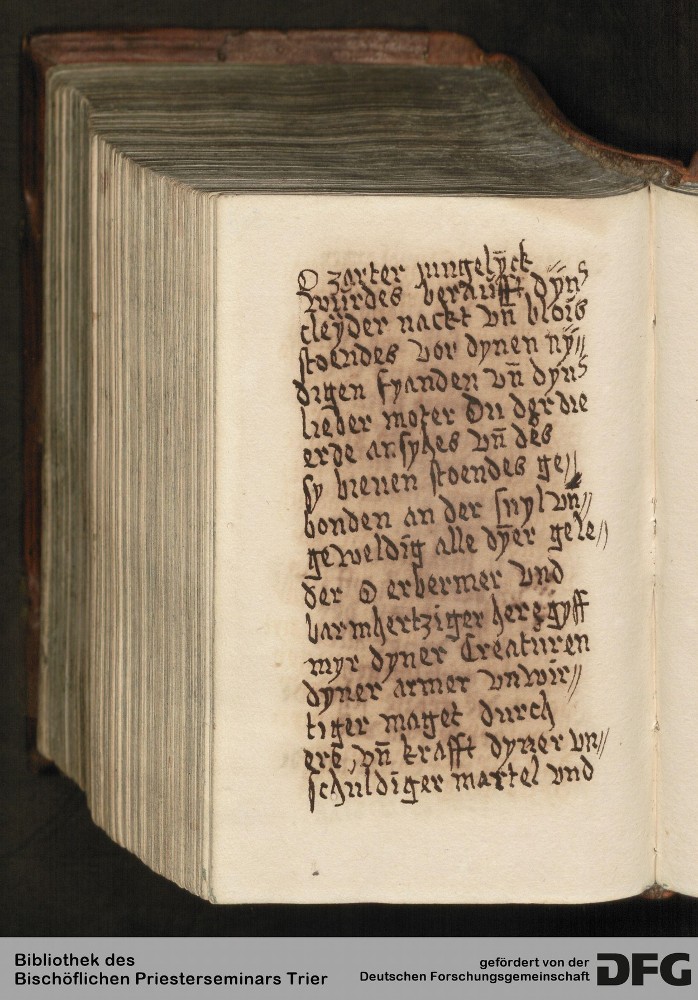 O zarter jungelÿck //
wurdes beraufft dÿns
cleÿder nackt vn̄ blois
stoendes vor dynen nÿ//
digen fyanden vn̄ dyns
lieber moter Du der die
erde ansyhes vn̄ des
sy bieuen stoendes ge//
bonden an der suyl vn//
geweldig alle dÿer gele//
der O erbermer vnd
barmhertziger here gyff
myr dyner Creaturen
dyner armer vnwir//
tiger maget durch
ere, vn̄ krafft dyner vn//
schuldiger martel vnd
Bibliothek des
Bischöflichen Priesterseminars Trier
gefördert von der
Deutschen Forschungsgemeinschaft DFG